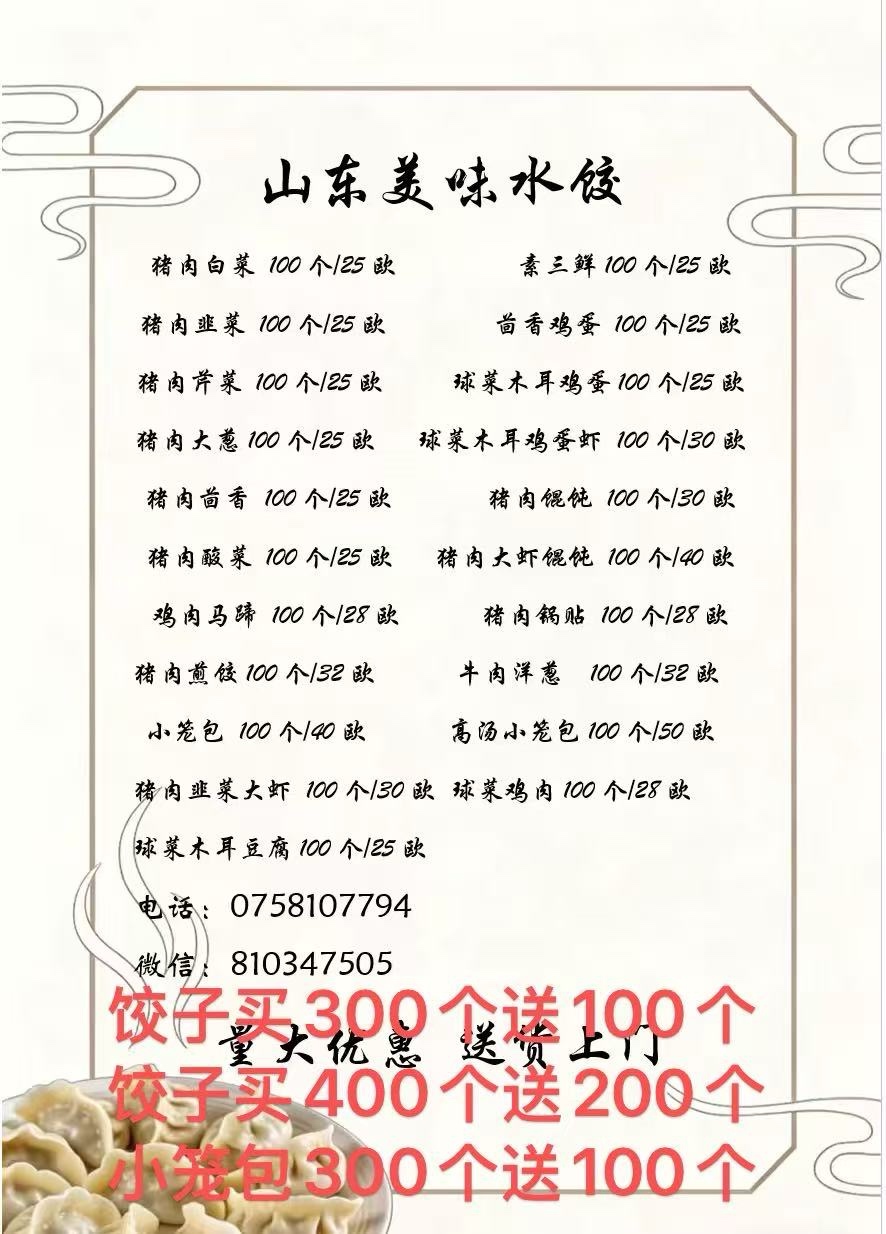 山东美味水饺
猪肉白菜 100 个/25 欧 素三鲜 100 个/25 欧
猪肉韭菜 100 个/25 欧 茴香鸡蛋 100 个/25 欧
猪肉芹菜 100 个/25 欧 球菜木耳鸡蛋 100 个/25 欧
猪肉大葱 100 个/25 欧 球菜木耳鸡蛋虾 100 个/30 欧
猪肉茴香 100 个/25 欧 猪肉馄饨 100 个/30 欧
猪肉酸菜 100 个/25 欧 猪肉大虾馄饨 100 个/40 欧
鸡肉马蹄 100 个/28 欧 猪肉锅贴 100 个/28 欧
猪肉煎饺 100 个/32 欧 牛肉洋葱 100 个/32 欧
小笼包 100 个/40 欧 高汤小笼包 100 个/50 欧
猪肉韭菜大虾 100 个/30 欧 球菜鸡肉 100 个/28 欧
球菜木耳豆腐 100 个/25 欧
电话：0758107794
微信：810347505
饺子买300个送100个
量大优惠 送货上门
饺子买400个送200个
小笼包300个送100个